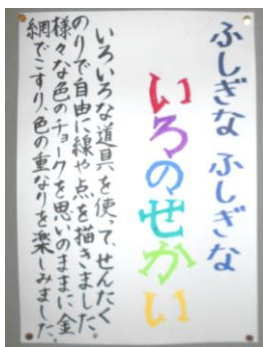 ふしぎな ふしぎな
いろのせかい
いろいろな道具を使って、せんたく
のりで自由に線や点を描きました。
様々な色のチョークを思いのままに金
網でこすり、色の重なりを楽しみました。